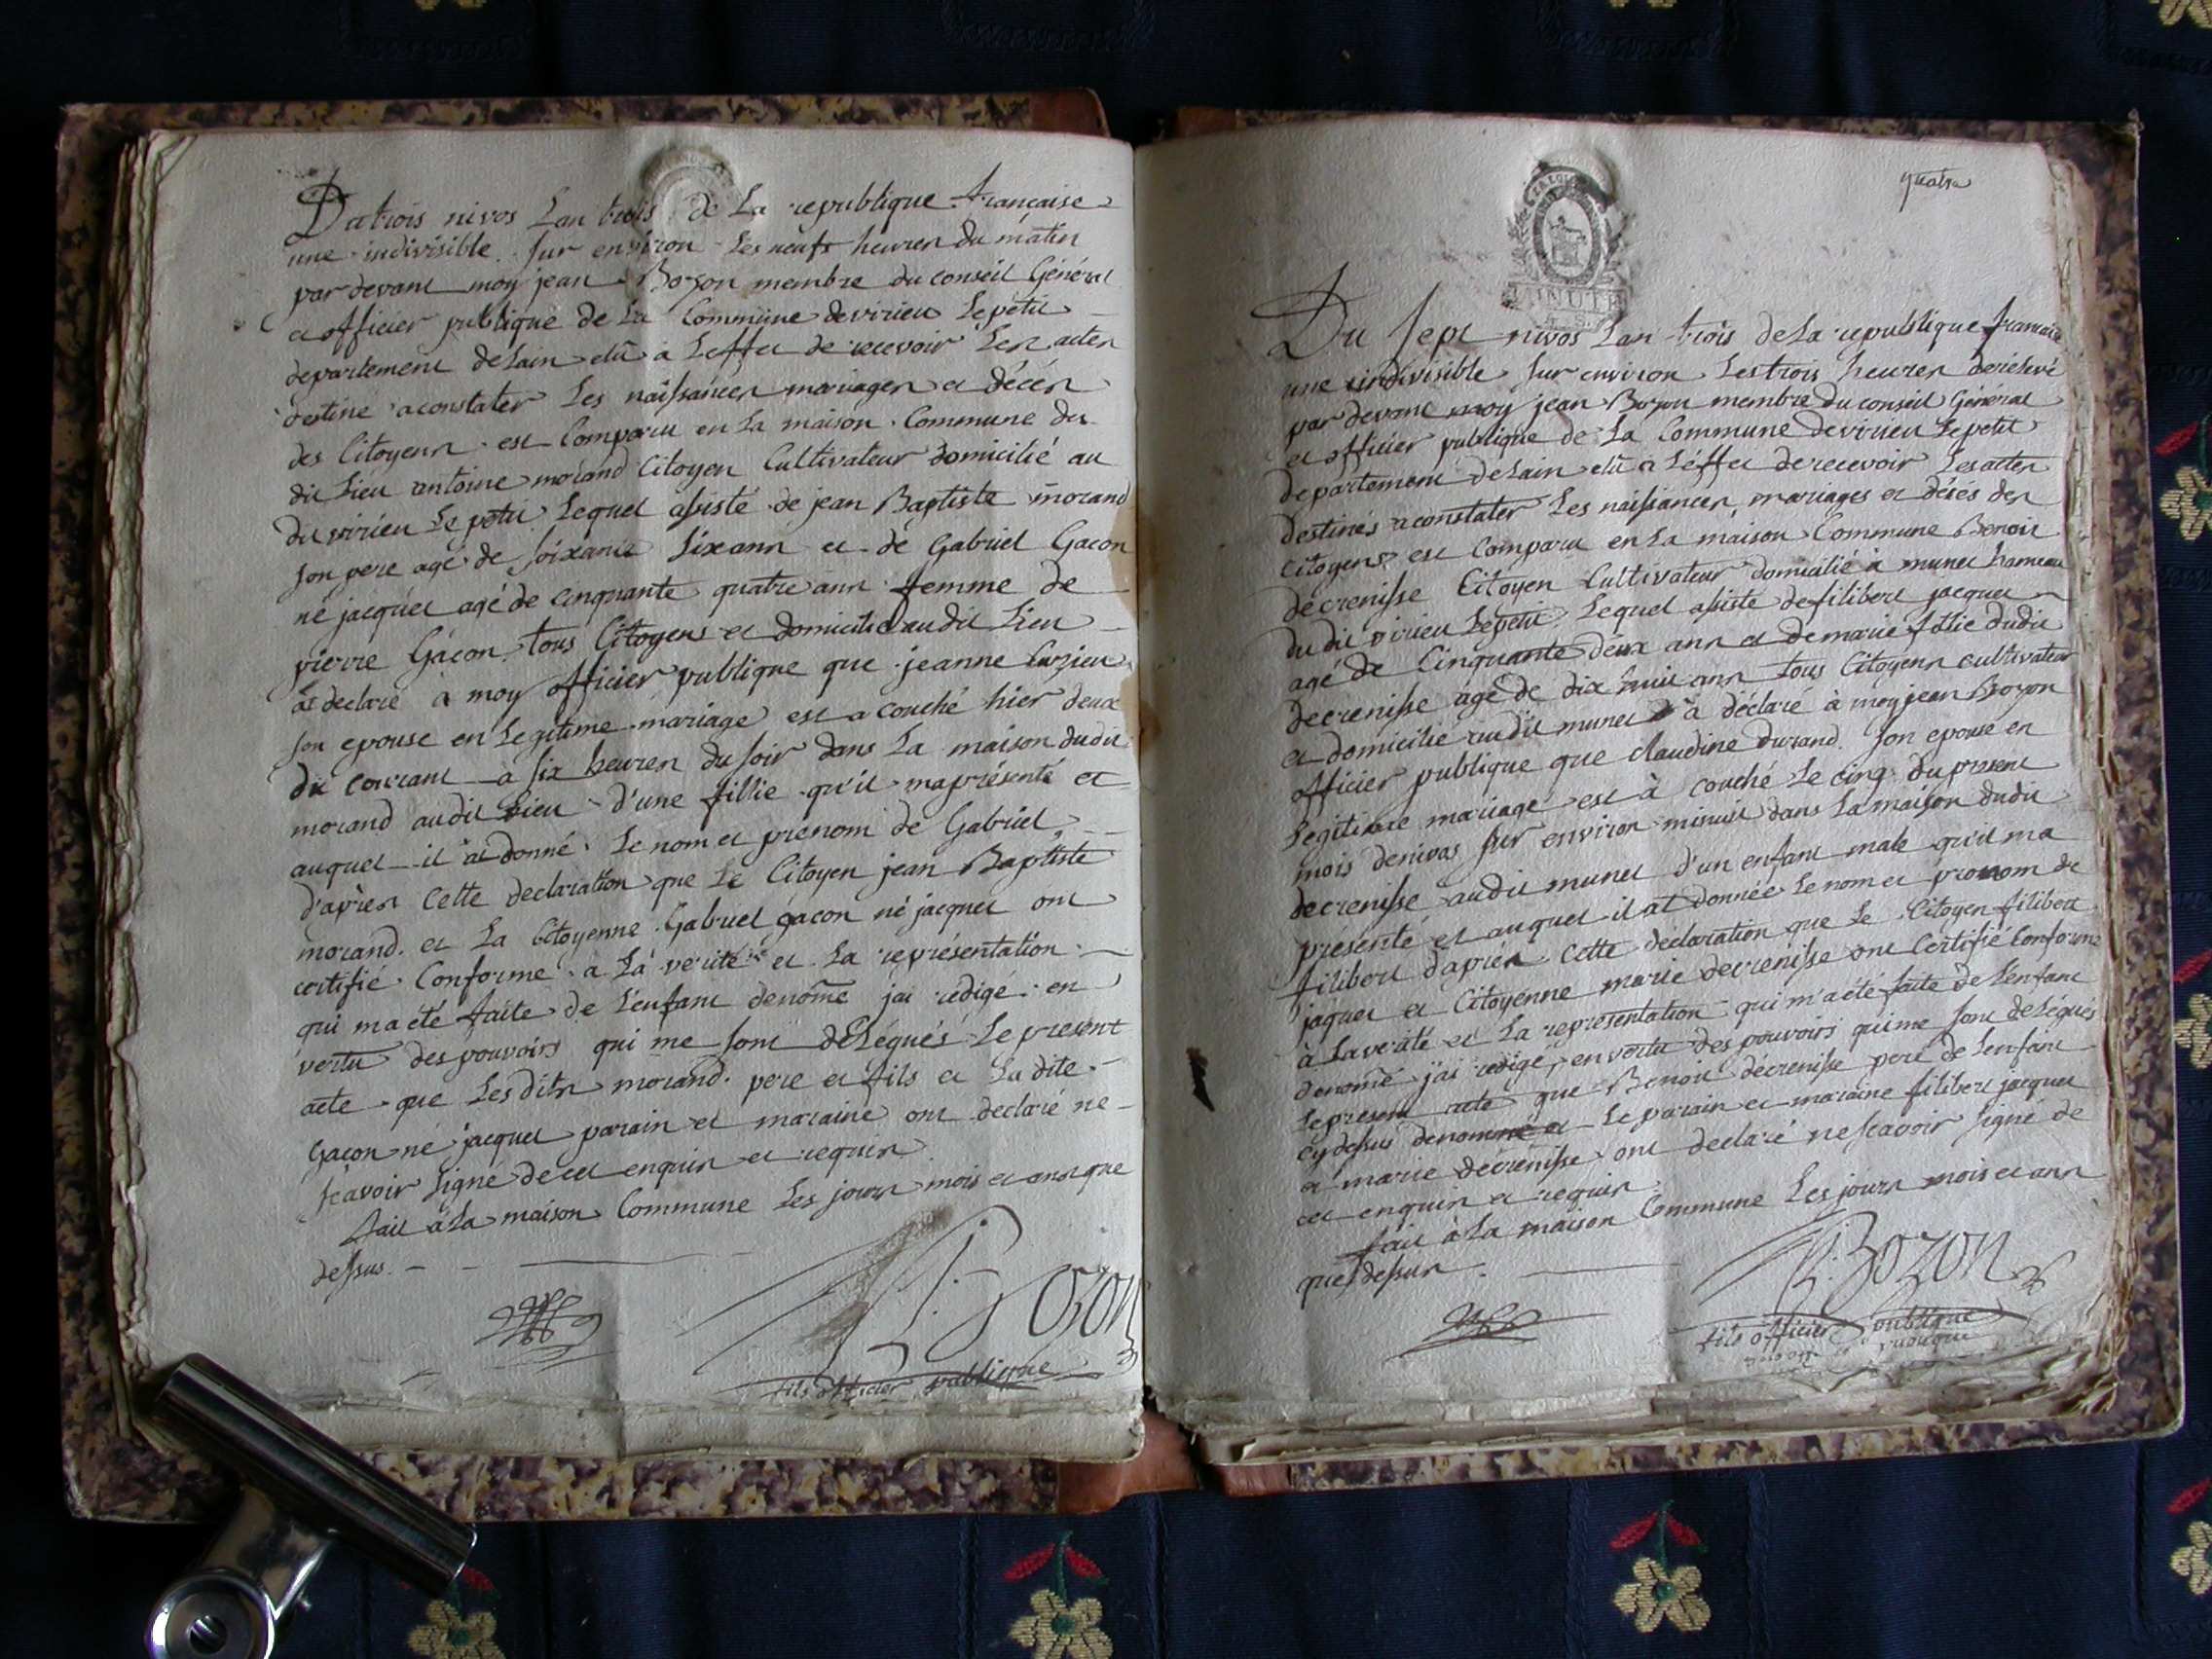 Du trois nivos Lan trois de La republique française
une indivisible sur environ Les neufs heures du matin
par devant moy jean Bozon membre du conseil Général
et officier publique de La Commune de virieu Le petit
departement de Lain elû a Leffet de recevoir Les actes
destiné a constater Les naissances mariages et décés
des Citoyens est Comparu en La maison Commune du
dit Lieu antoine morand Citoyen Cultivateur domicilié au
du virieu Le petit Lequel assisté de jean Baptiste morand
son pere agé de soixante Six ans et de Gabriel Gacon
né jacquet agé de cinquante quatre ans femme de
pierre Gacon tous Citoyens et domicilié au dit Lieu
at declaré à moy officier publique que jeanne
son epouse en Legitime mariage est a couché hier deux
du courant à six heures du soir dans La maison dudit
morand audit Lieu d'une fillie qu'il ma présenté et
auquel il at donné Le nom et prénom de Gabriel
d'après Cette declaration que Le Citoyen jean Baptiste
morand et La Citoyenne Gabriel gacon né jacquet ont
certifié Conforme à La verité et La représentation
qui ma été faite de L'enfant denomé jai rédigé en
vertu des pouvoirs qui me sont délégués Le present
acte que Les dits morand pere et fils et La dite
Gacon né jacquet parain et maraine ont declaré ne
scavoir signé de ce enquis et requis
fait à La maison Commune Les jours mois et ans que
dessus
J. Bozon
fils officier publique
quatre
MINUTE
Du sept nivos Lan trois de La republique francaise
une indivisible sur environ Les trois heures de relevé
par devant moy jean Bozon membre du conseil Général
et officier publique de La Commune de virieu Le petit
departement de Lain elû a L'effet de recevoir Les actes
destinés a constater Les naissances mariages et décés des
Citoyens est Comparu en La maison Commune Benoit
decrenisse Citoyen Cultivateur domicilié à munet hameau
du dit virieu Le petit Lequel assisté de filibert jacquet
agé de Cinquante deux ans et de marie fillie dudit
decrenisse agé de dix huit ans tous Citoyens cultivateur
et domicilié audit munet a déclaré à moy jean Bozon
officier publique que claudine durand son epouse en
Legitime mariage est à couché Le cinq du present
mois de nivos sur environ minuit dans La maison dudit
decrenisse audit munet d'un enfant male qu'il ma
présenté et auquel il at donnée Le nom et prénom de
filibert d'après Cette déclaration que Le Citoyen filibert
jaquet et Citoyenne marie decrenisse ont Certifié Conforme
à La verité et La représentation qui m'a été faite de L'enfant
denomé j'ai rédigé en vertu des pouvoirs qui me sont délégués
Le present acte que Benoit décrenisse pere de Lenfant
cy dessus denommé et Le parain et maraine filibert jacquet
et marie decrenisse ont declaré ne scavoir signé de
ce enquis et requis
fait à La maison Commune Les jours mois et ans
que dessus
J. Bozon
fils officier publique